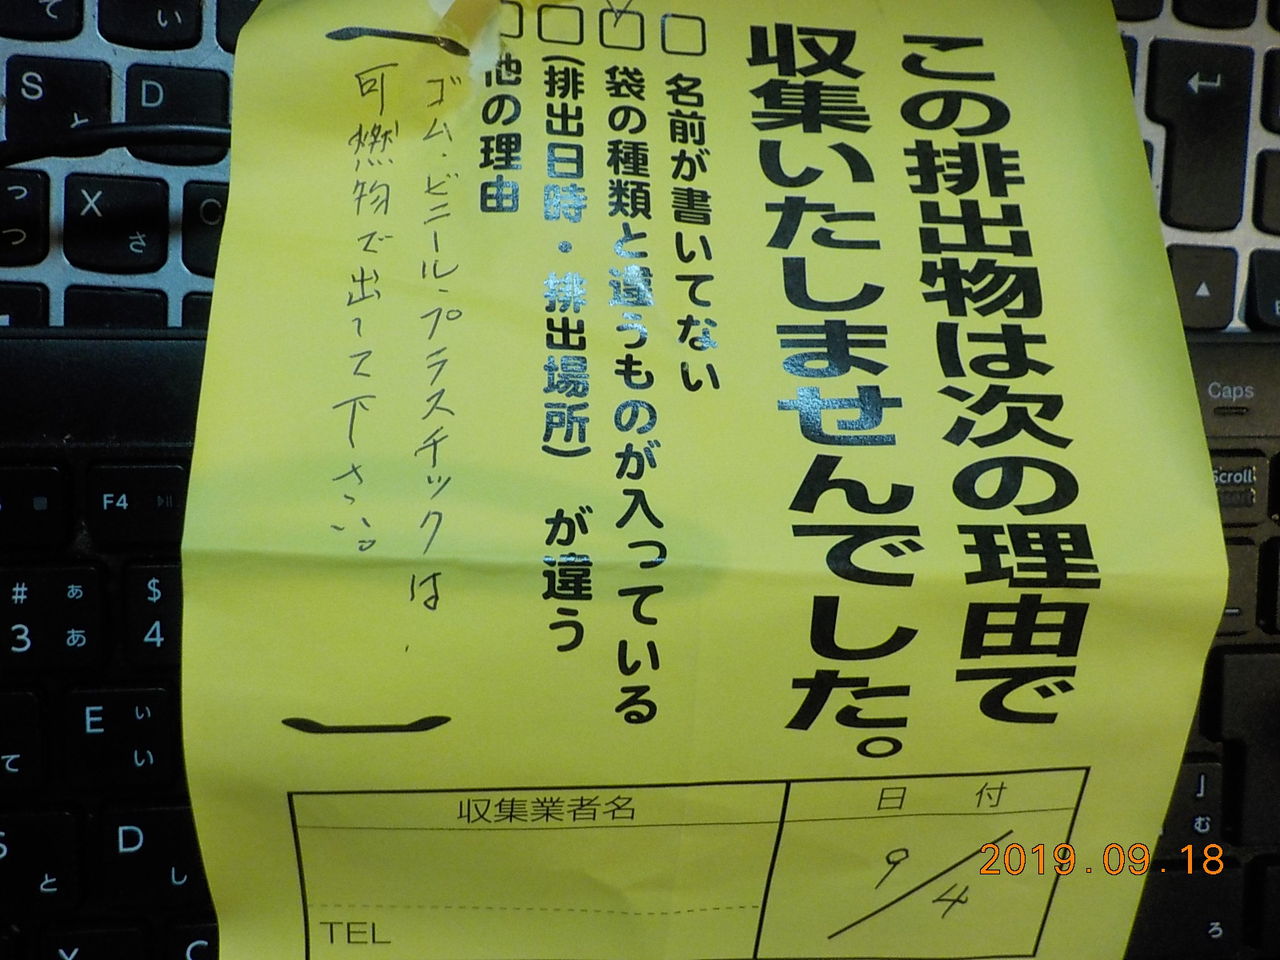 この排出物は次の理由で
収集いたしませんでした。
□ 名前が書いてない
☑ 袋の種類と違うものが入っている
□ (排出日時・排出場所) が違う
他の理由
ゴム・ビニール・プラスチックは
可燃物で出して下さい。
日 付
9/4
収集業者名
TEL
2019.09.18
て
い
S
と
D
つ
つ
X
さ
C
F4
# あ
3 あ
$
4
E い
い
て
S
と
D
し
C
Caps
Scroll
む
ろ